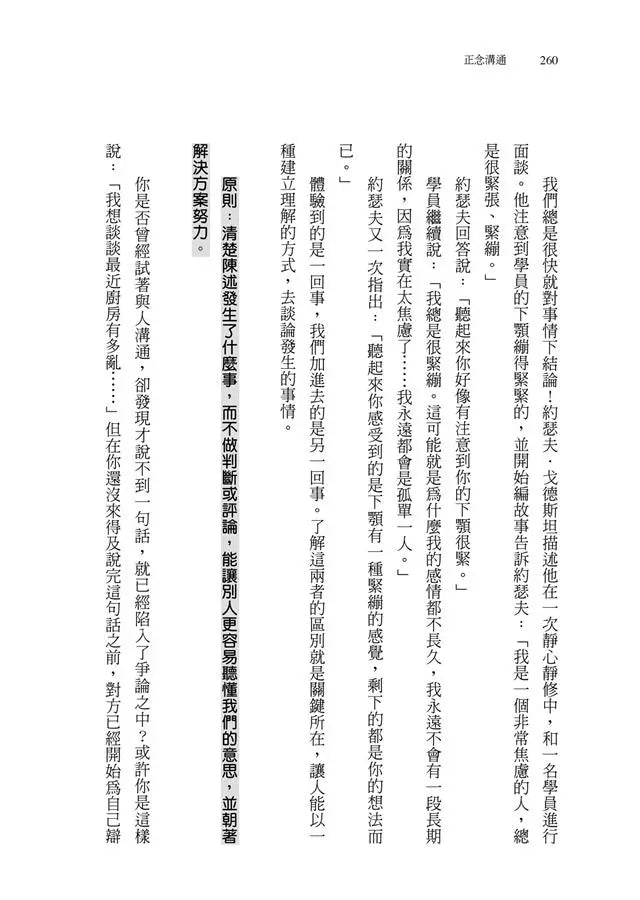 正念溝通 260
我們總是很快就對事情下結論！約瑟夫．戈德斯坦描述他在一次靜心靜修中，和一名學員進行
面談。他注意到學員的下顎繃得緊緊的，並開始編故事告訴約瑟夫：「我是一個非常焦慮的人，總
是很緊張、緊繃。」
約瑟夫回答說：「聽起來你好像有注意到你的下顎很緊。」
學員繼續說：「我總是很緊繃。這可能就是為什麼我的感情都不長久，我永遠不會有一段長期
的關係，因為我實在太焦慮了⋯⋯我永遠都會是孤單一人。」
約瑟夫又一次指出：「聽起來你感受到的是下顎有一種緊繃的感覺，剩下的都是你的想法而
已。」
體驗到的是一回事，我們加進去的是另一回事。了解這兩者的區別就是關鍵所在，讓人能以一
種建立理解的方式，去談論發生的事情。
原則：清楚陳述發生了什麼事，而不做判斷或評論，能讓別人更容易聽懂我們的意思，並朝著
解決方案努力。
你是否曾經試著與人溝通，卻發現才說不到一句話，就已經陷入了爭論之中？或許你是這樣
說：「我想談談最近廚房有多亂⋯⋯」但在你還沒來得及說完這句話之前，對方已經開始為自己辯